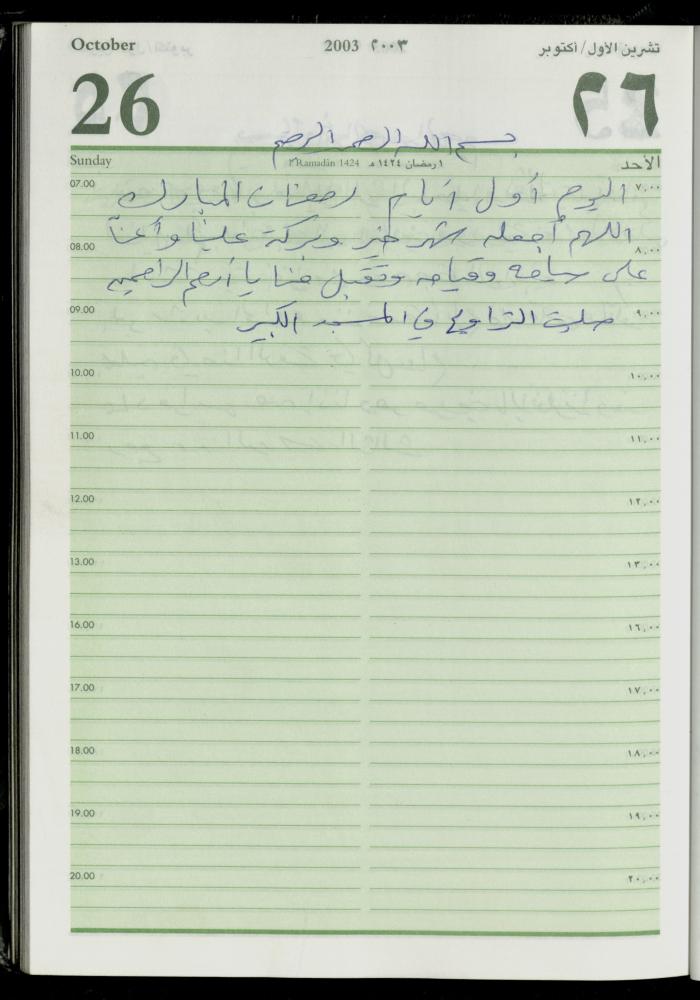 October 2003 ٢٠٠٣ تشرين الأول/أكتوبر
26 ٢٦
بسم الله الرحمن الرحيم
Sunday Ramadân 1424 ١ رمضان ١٤٢٤ هـ الأحد
07.00 اليوم أول أيام رمضان المبارك ٧,٠٠
اللهم أجعله شهر خير وبركة علينا وأعنا
08.00 ٨,٠٠
على صيامه وقيامه وتقبل منا يا أرحم الراحمين
09.00 صليت التراويح في المسجد الكبير ٩,٠٠
10.00 ١٠,٠٠
11.00 ١١,٠٠
12.00 ١٢,٠٠
13.00 ١٣,٠٠
16.00 ١٦,٠٠
17.00 ١٧,٠٠
18.00 ١٨,٠٠
19.00 ١٩,٠٠
20.00 ٢٠,٠٠